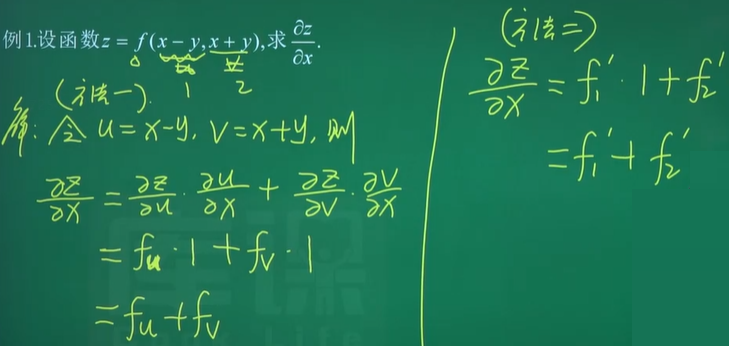 例1.设函数z = f(x − y, x + y),求 ∂z/∂x.
1 2
(方法一).
解:令 u=x-y, v=x+y, 则
∂z/∂x = ∂z/∂u · ∂u/∂x + ∂z/∂v · ∂v/∂x
= fu · 1 + fv · 1
= fu + fv
(方法二)
∂z/∂x = f1' · 1 + f2'
= f1' + f2'